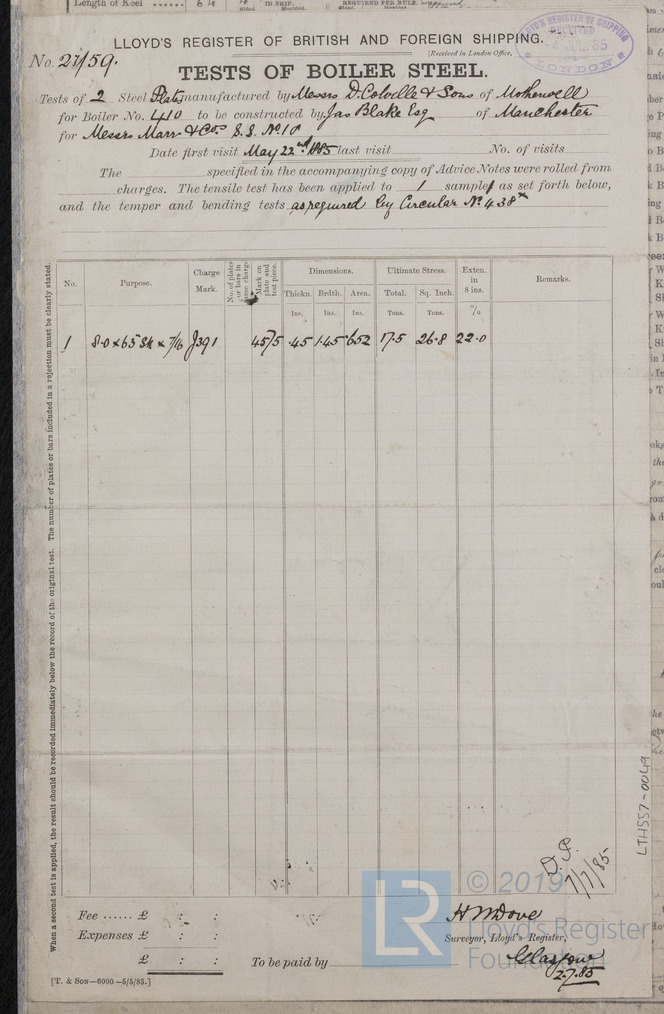 Length of Keel ......
IN SHIP.
REQUIRED PER RULE.
LLOYD'S REGISTER OF BRITISH AND FOREIGN SHIPPING.
LLOYD'S REGISTER OF SHIPPING
RECEIVED
LONDON
No. 21159.
(Received in London Office,
TESTS OF BOILER STEEL.
Tests of 2 Steel Plates manufactured by Messrs D. Colville & Sons of Motherwell
for Boiler No. 410 to be constructed by Jas Blake Esq of Manchester
for Messrs Marr & Cos S.S. No 10
Date first visit May 22nd 1885 last visit No. of visits
The specified in the accompanying copy of Advice Notes were rolled from
charges. The tensile test has been applied to 1 sample as set forth below,
and the temper and bending tests as required by Circular No 438
No. Purpose. Charge Mark. No. of plates or bars in same charge Mark on plate and test piece. Dimensions. Ultimate Stress. Exten. in 8 ins. Remarks.
Thickn. Brdth. Area. Total. Sq. Inch.
Ins. Ins. Ins. Tons. Tons. %
1 8.0 x 65 x 7/16 J391 4575 .45 1.45 .652 17.5 26.8 22.0
When a second test is applied, the result should be recorded immediately below the record of the original test. The number of plates or bars included in a rejection must be clearly stated.
LTH557-0049
D.P.
7/7/85
© 2019
LR
Lloyd's Register
Foundation
Fee ...... £ : :
Expenses £ : :
£ : :
To be paid by
H M Dove
Surveyor, Lloyd's Register,
Glasgow
2.7.85
[T. & SON—6000—5/5/85.]